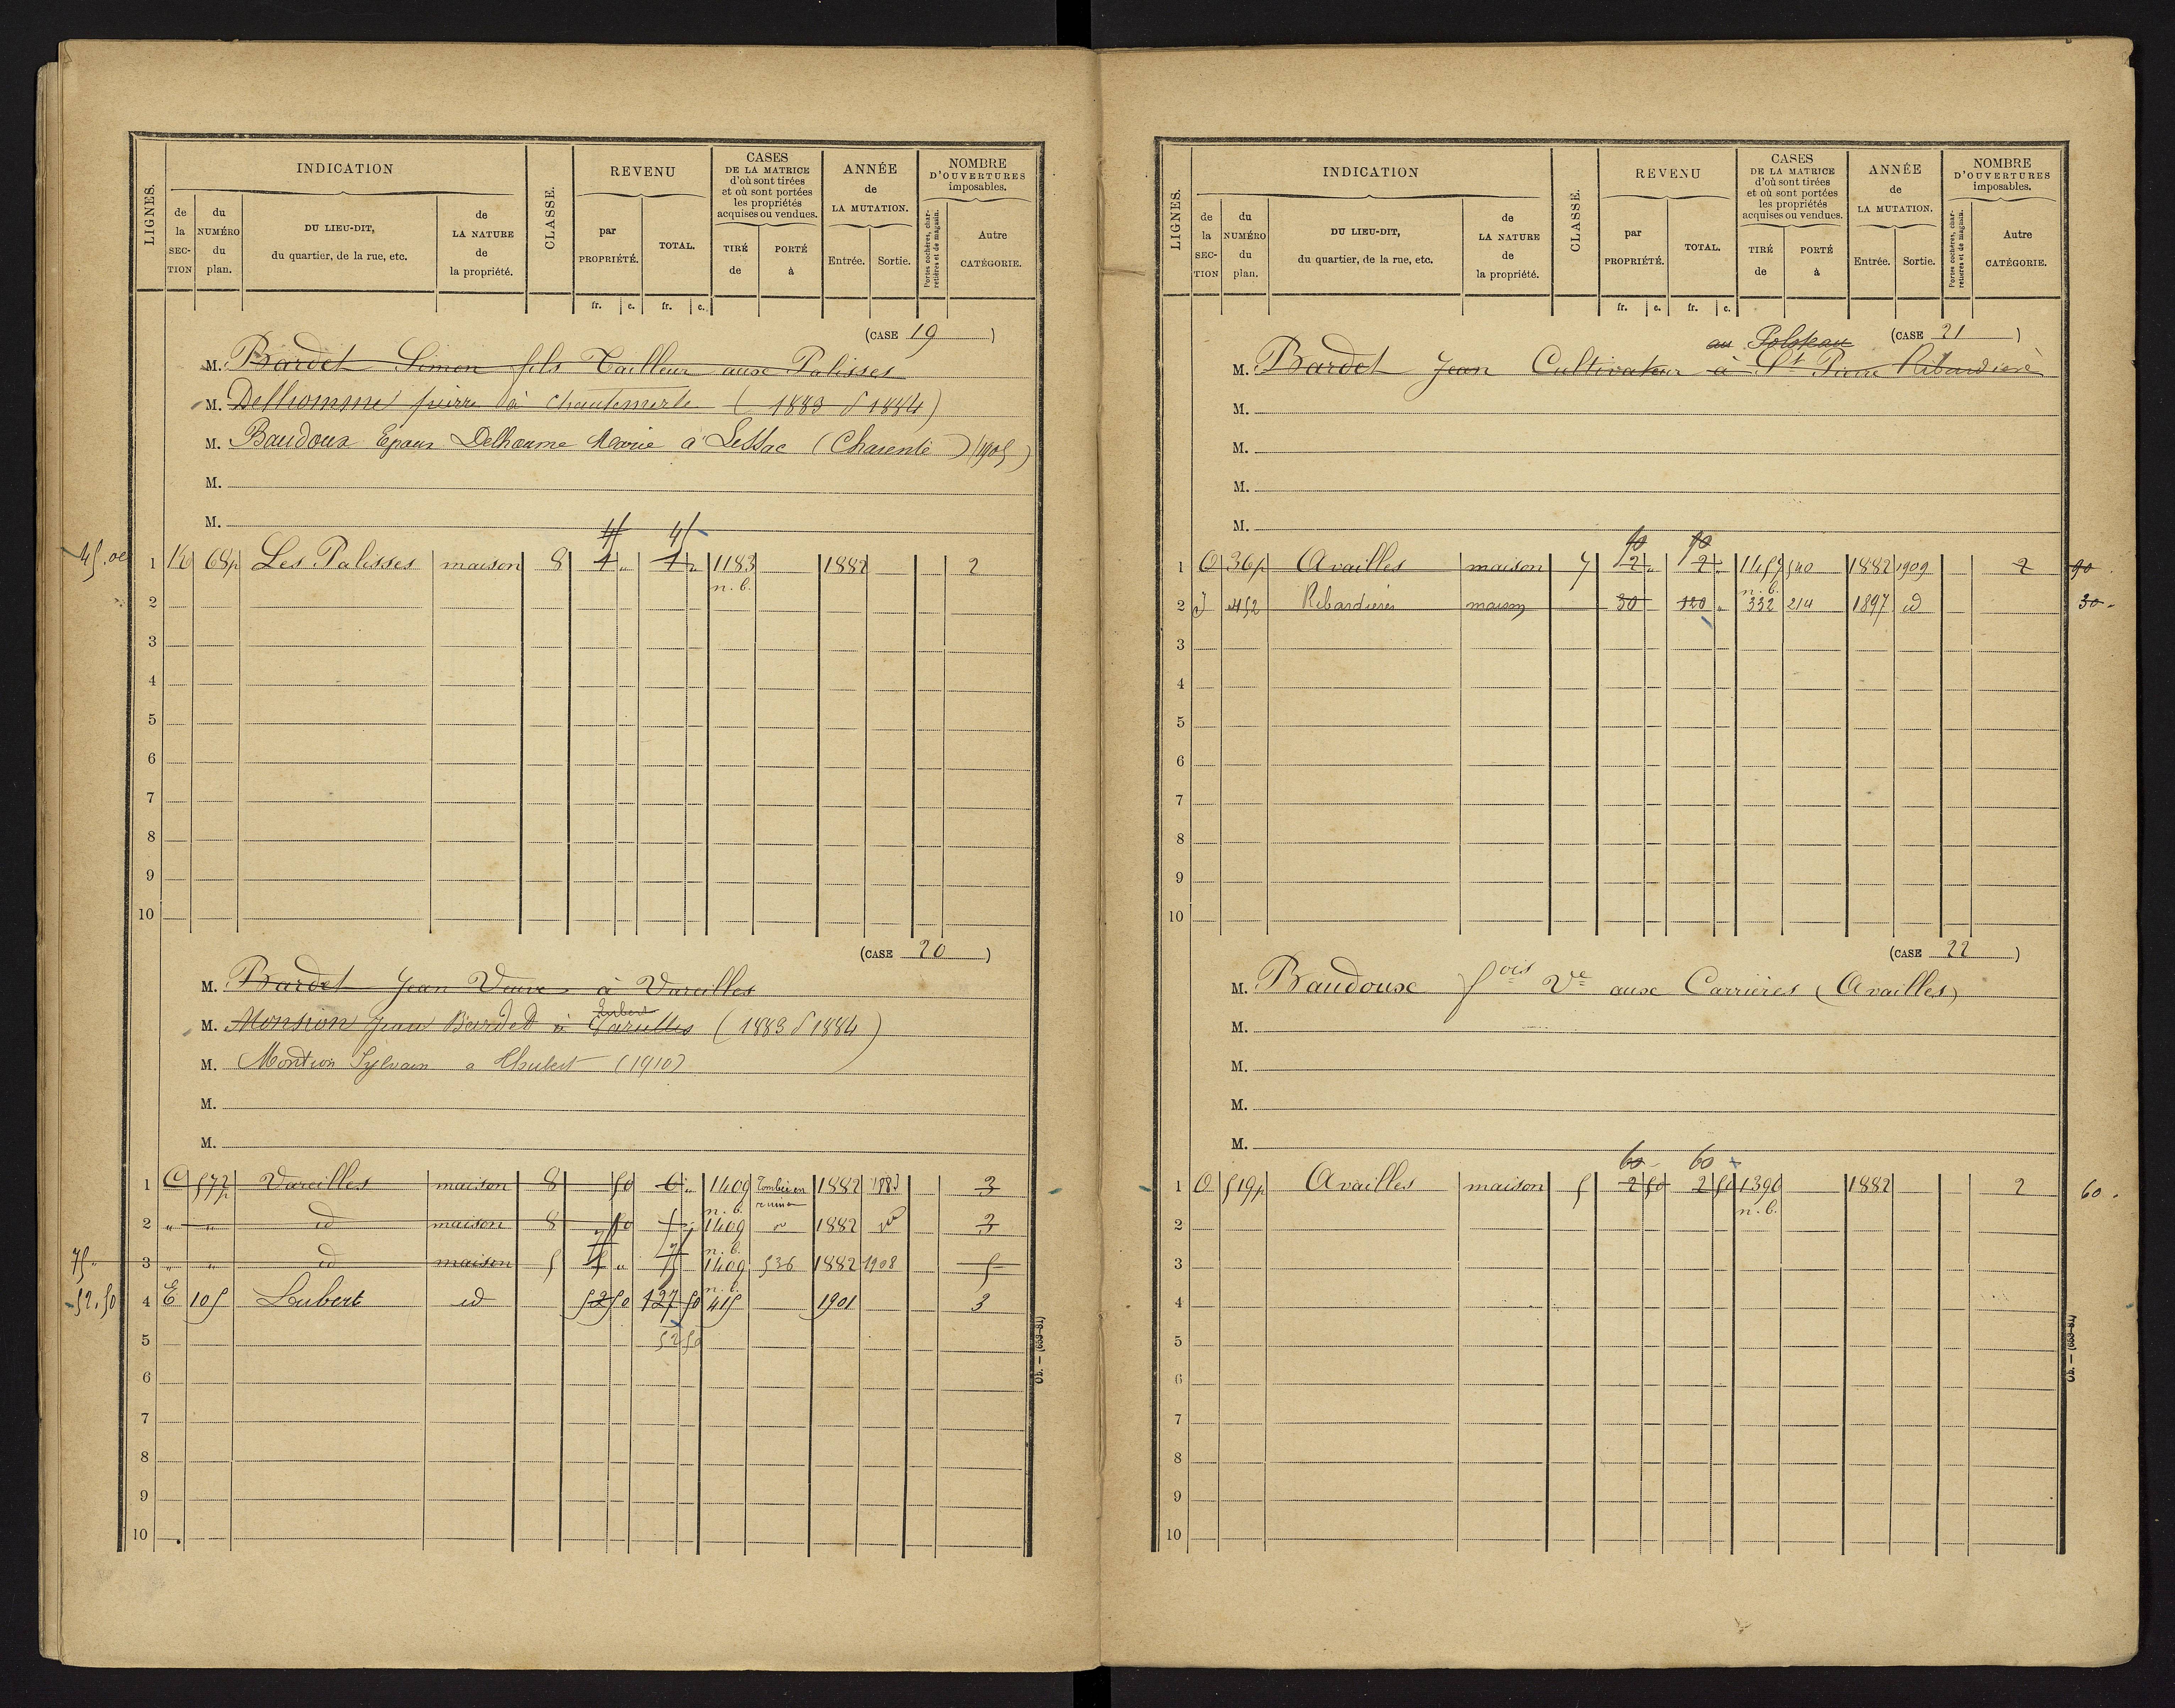 LIGNES.
INDICATION
de la SECTION
du NUMÉRO du plan.
DU LIEU-DIT, du quartier, de la rue, etc.
de LA NATURE de la propriété.
CLASSE.
REVENU
par PROPRIÉTÉ.
TOTAL.
CASES DE LA MATRICE d'où sont tirées et où sont portées les propriétés acquises ou vendues.
TIRÉ de
PORTÉ à
ANNÉE de LA MUTATION.
Entrée.
Sortie.
NOMBRE D'OUVERTURES imposables.
Portes cochères, charretières et de magasin.
Autre CATÉGORIE.
fr. c. fr. c.
(CASE 19)
M. Bardet Simon fils Tailleur aux Palisses
M. Delhomme pierre à Chantemerle (1883 P 1884)
M. Baudoux Epoux Delhomme Marie à Lessac (Charente) (1905)
M.
M.
45 45
45.00 1 K 68p Les Palisses maison 8 4 " 4 " 1183 1882 2
n. b.
2
3
4
5
6
7
8
9
10
(CASE 20)
M. Bardet Jean Veuve à Vareilles
Hubert
M. Monsion Jean Bardet à Vareilles (1883 P 1884)
M. Montion Sylvain a Hubert (1910)
M.
M.
1 C 572p Vareilles maison 8 50 6 " 1409 Tombée en ruine 1882 1883 3
n. b.
2 " " id maison 8 50 1409 1882 3
75 75 n. b.
75 " 3 " " id maison 5 " 1409 536 1882 1908 5
n. b.
52.50 4 E 105 Lubert id 52 50 127 50 415 1901 3
5 52 50
6
7
8
9
10
LIGNES.
INDICATION
de la SECTION
du NUMÉRO du plan.
DU LIEU-DIT, du quartier, de la rue, etc.
de LA NATURE de la propriété.
CLASSE.
REVENU
par PROPRIÉTÉ.
TOTAL.
CASES DE LA MATRICE d'où sont tirées et où sont portées les propriétés acquises ou vendues.
TIRÉ de
PORTÉ à
ANNÉE de LA MUTATION.
Entrée.
Sortie.
NOMBRE D'OUVERTURES imposables.
Portes cochères, charretières et de magasin.
Autre CATÉGORIE.
fr. c. fr. c.
(CASE 21)
au
M. Bardet Jean Cultivateur à St Pierre Ribardière
M.
M.
M.
M.
90 90
1 O 36p Availles maison 7 2 " 2 " 1457 540 1882 1909 2 90
n. b.
2 J 452 Ribardières maison 30 120 " 332 214 1897 id 30 -
3
4
5
6
7
8
9
10
(CASE 22)
M. Baudoux fois Ve aux Carrières (Availles)
M.
M.
M.
M.
60 - 60
1 O 519p Availles maison 5 2 50 2 50 1396 1882 2 60 .
n. b.
2
3
4
5
6
7
8
9
10